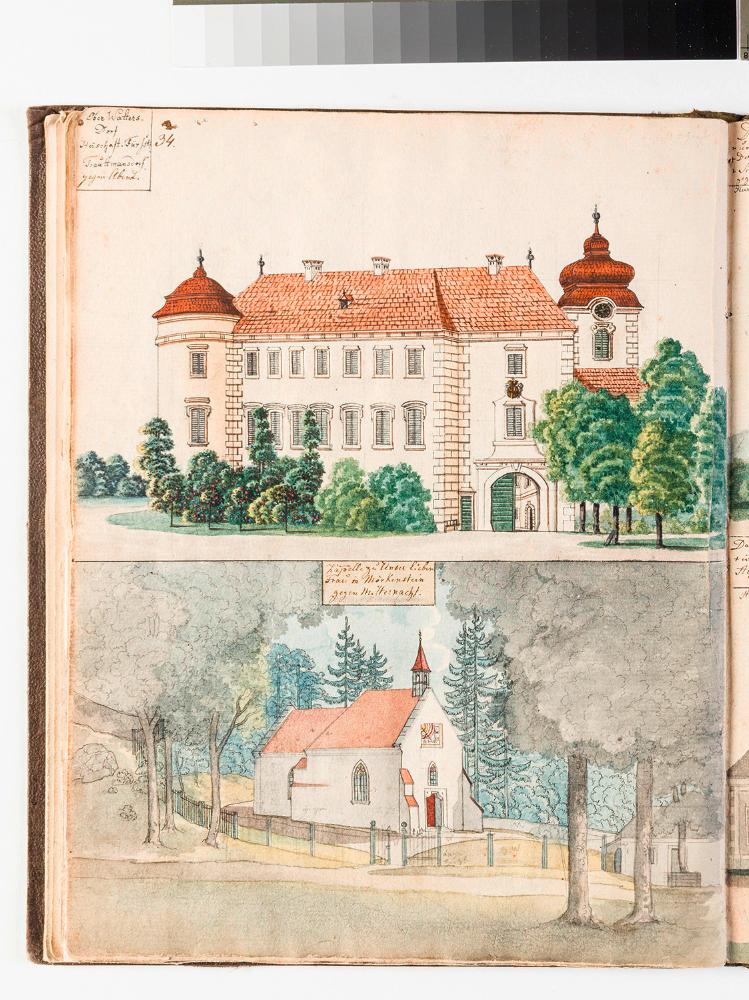 Ober Walters-
Dorf
Herschaft. Fürst:
Trautmansdorf.
gegen Abend.
34.
Kapelle zu Unser lieben
Frau in Merkenstein
gegen Mitternacht.